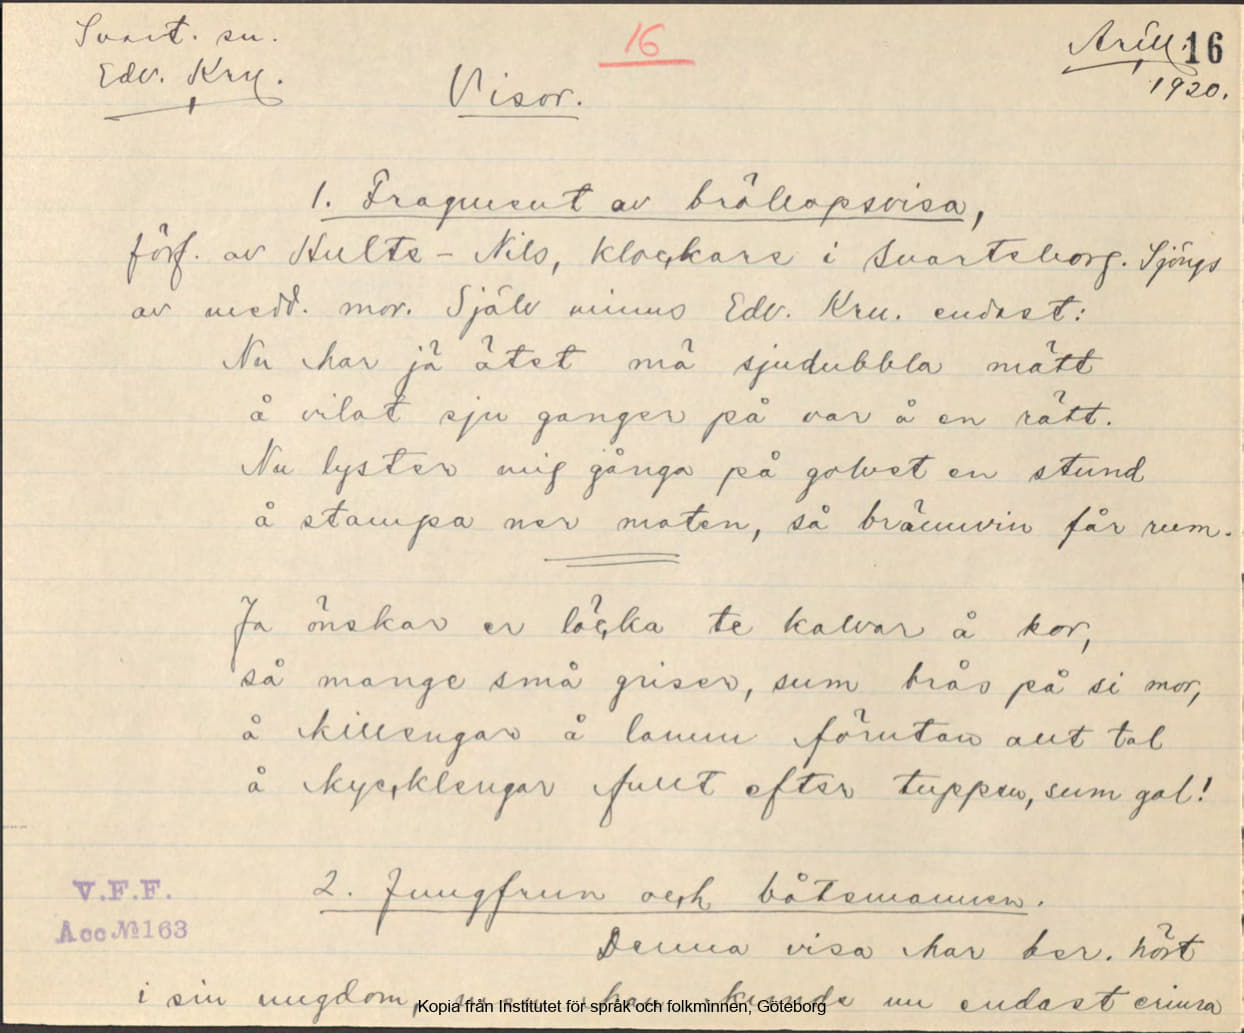 Svart. sn.
Edv. Krn.
16
Arill. 16
1920.
Visor.
1. Fragment av bröllopsvisa,
förf. av Hults-Nils, klockare i Svartsborg. Sjöngs
av medd. mor. Själv minns Edv. Krn. endast:
Nu har jä ätet mä sjudubbla mätt
å vilat sju ganger på var å en rätt.
Nu lyster mig gånga på golvet en stund
å stampa ner maten, så brännvin får rum.
Ja önskar er löcka te kalvar å kor,
så mange små griser, sum brås på si mor,
å killengar å lamm förutan allt tal
å kycklengar fullt efter tuppen, sum gal!
V.F.F.
Acc № 163
2. Jungfrun och båtsmannen.
Denna visa har ber. hört
i sin ungdom, men han kunde nu endast erinra
Kopia från Institutet för språk och folkminnen, Göteborg